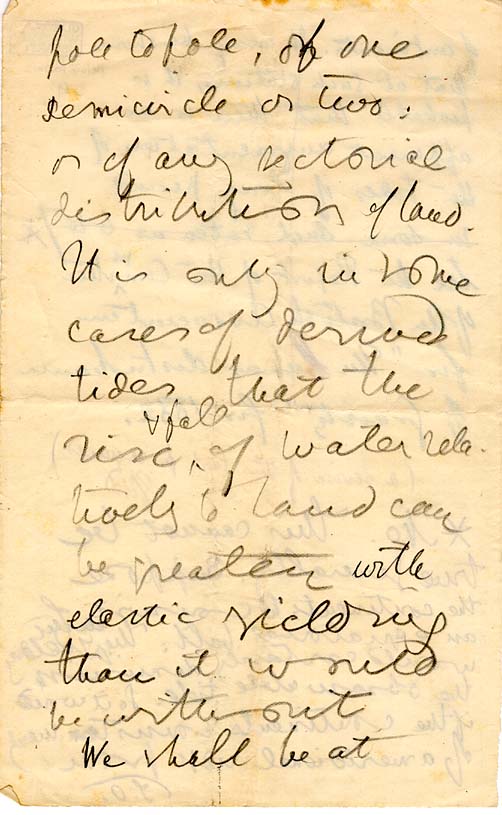 pole to pole, of one
semicircle or two.
or of any sectorial
distribution of land.
It is only in some
cases of derived
tides, that the
& fall
rise ‸ of water rela-
tively to land can
be greater with
elastic yielding
than it would
be without
We shall be at